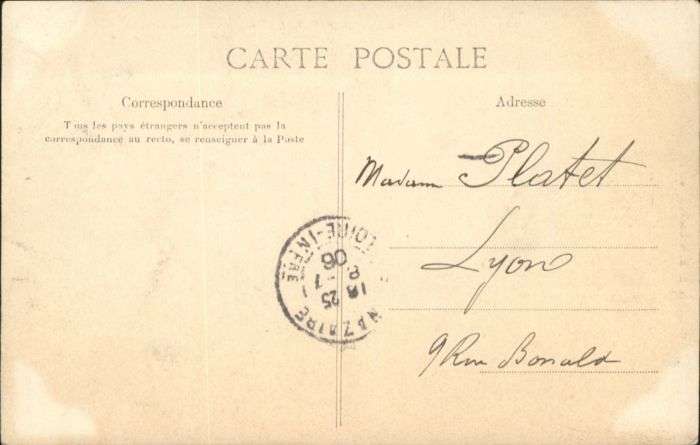 CARTE POSTALE
Correspondance
Tous les pays étrangers n'acceptent pas la
correspondance au recto, se renseigner à la Poste
Adresse
Madame Platet
Lyon
9 Rue Bonald
NAZAIRE
LOIRE-INFRE
25
-7
06